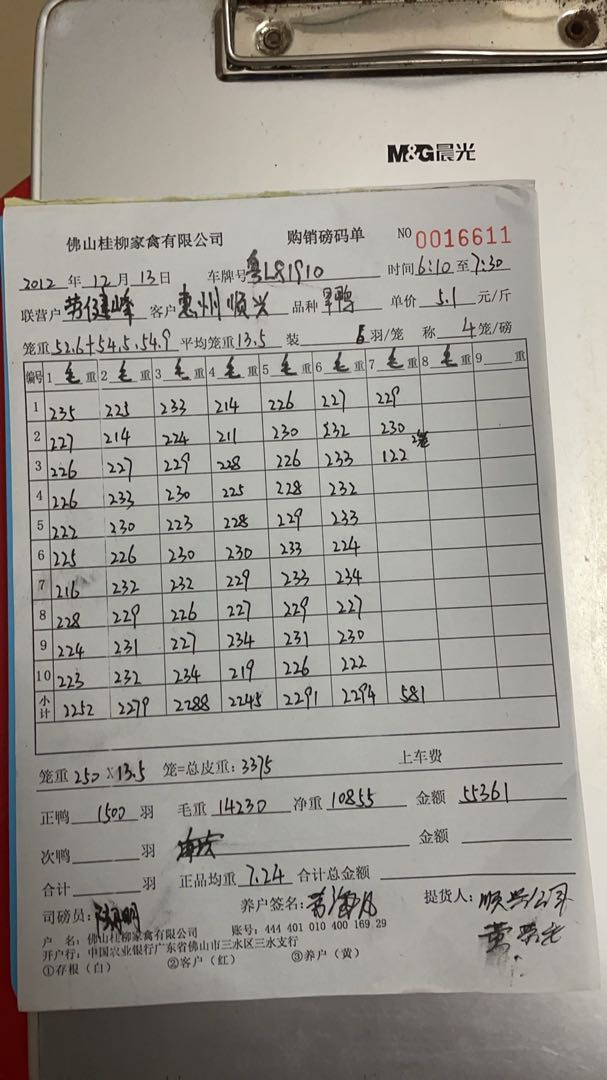 M&G晨光
佛山桂柳家禽有限公司 购销磅码单 NO 0016611
2012 年 12 月 13 日 车牌号 粤L81910 时间 6:10 至 7:30
联营户 劳健峰 客户 惠州顺兴 品种 旱鸭 单价 5.1 元/斤
笼重 52.6+54.5.54.9 平均笼重 13.5 装 6 羽/笼 称 4 笼/磅
编号 1 毛 重 2 毛 重 3 毛 重 4 毛 重 5 毛 重 6 毛 重 7 毛 重 8 毛 重 9 重
1 235 225 233 214 226 227 229
2 227 214 224 211 230 232 230
3 226 227 229 228 226 233 122 2笼
4 226 233 230 225 228 232
5 222 230 223 228 229 233
6 225 226 230 230 233 224
7 216 232 232 229 233 234
8 228 229 226 227 229 227
9 224 231 227 234 231 230
10 223 232 234 219 226 222
小计 2252 2279 2288 2245 2291 2294 581
笼重 250 X 13.5 笼=总皮重: 3375 上车费
正鸭 1500 羽 毛重 14230 净重 10855 金额 55361
次鸭 羽 金额
合计 羽 正品均重 7.24 合计总金额
司磅员: 养户签名: 提货人: 顺兴公司
户 名: 佛山桂柳家禽有限公司 账号: 444 401 010 400 169 29
黄荣光
开户行: 中国农业银行广东省佛山市三水区三水支行
①存根（白） ②客户（红） ③养户（黄）